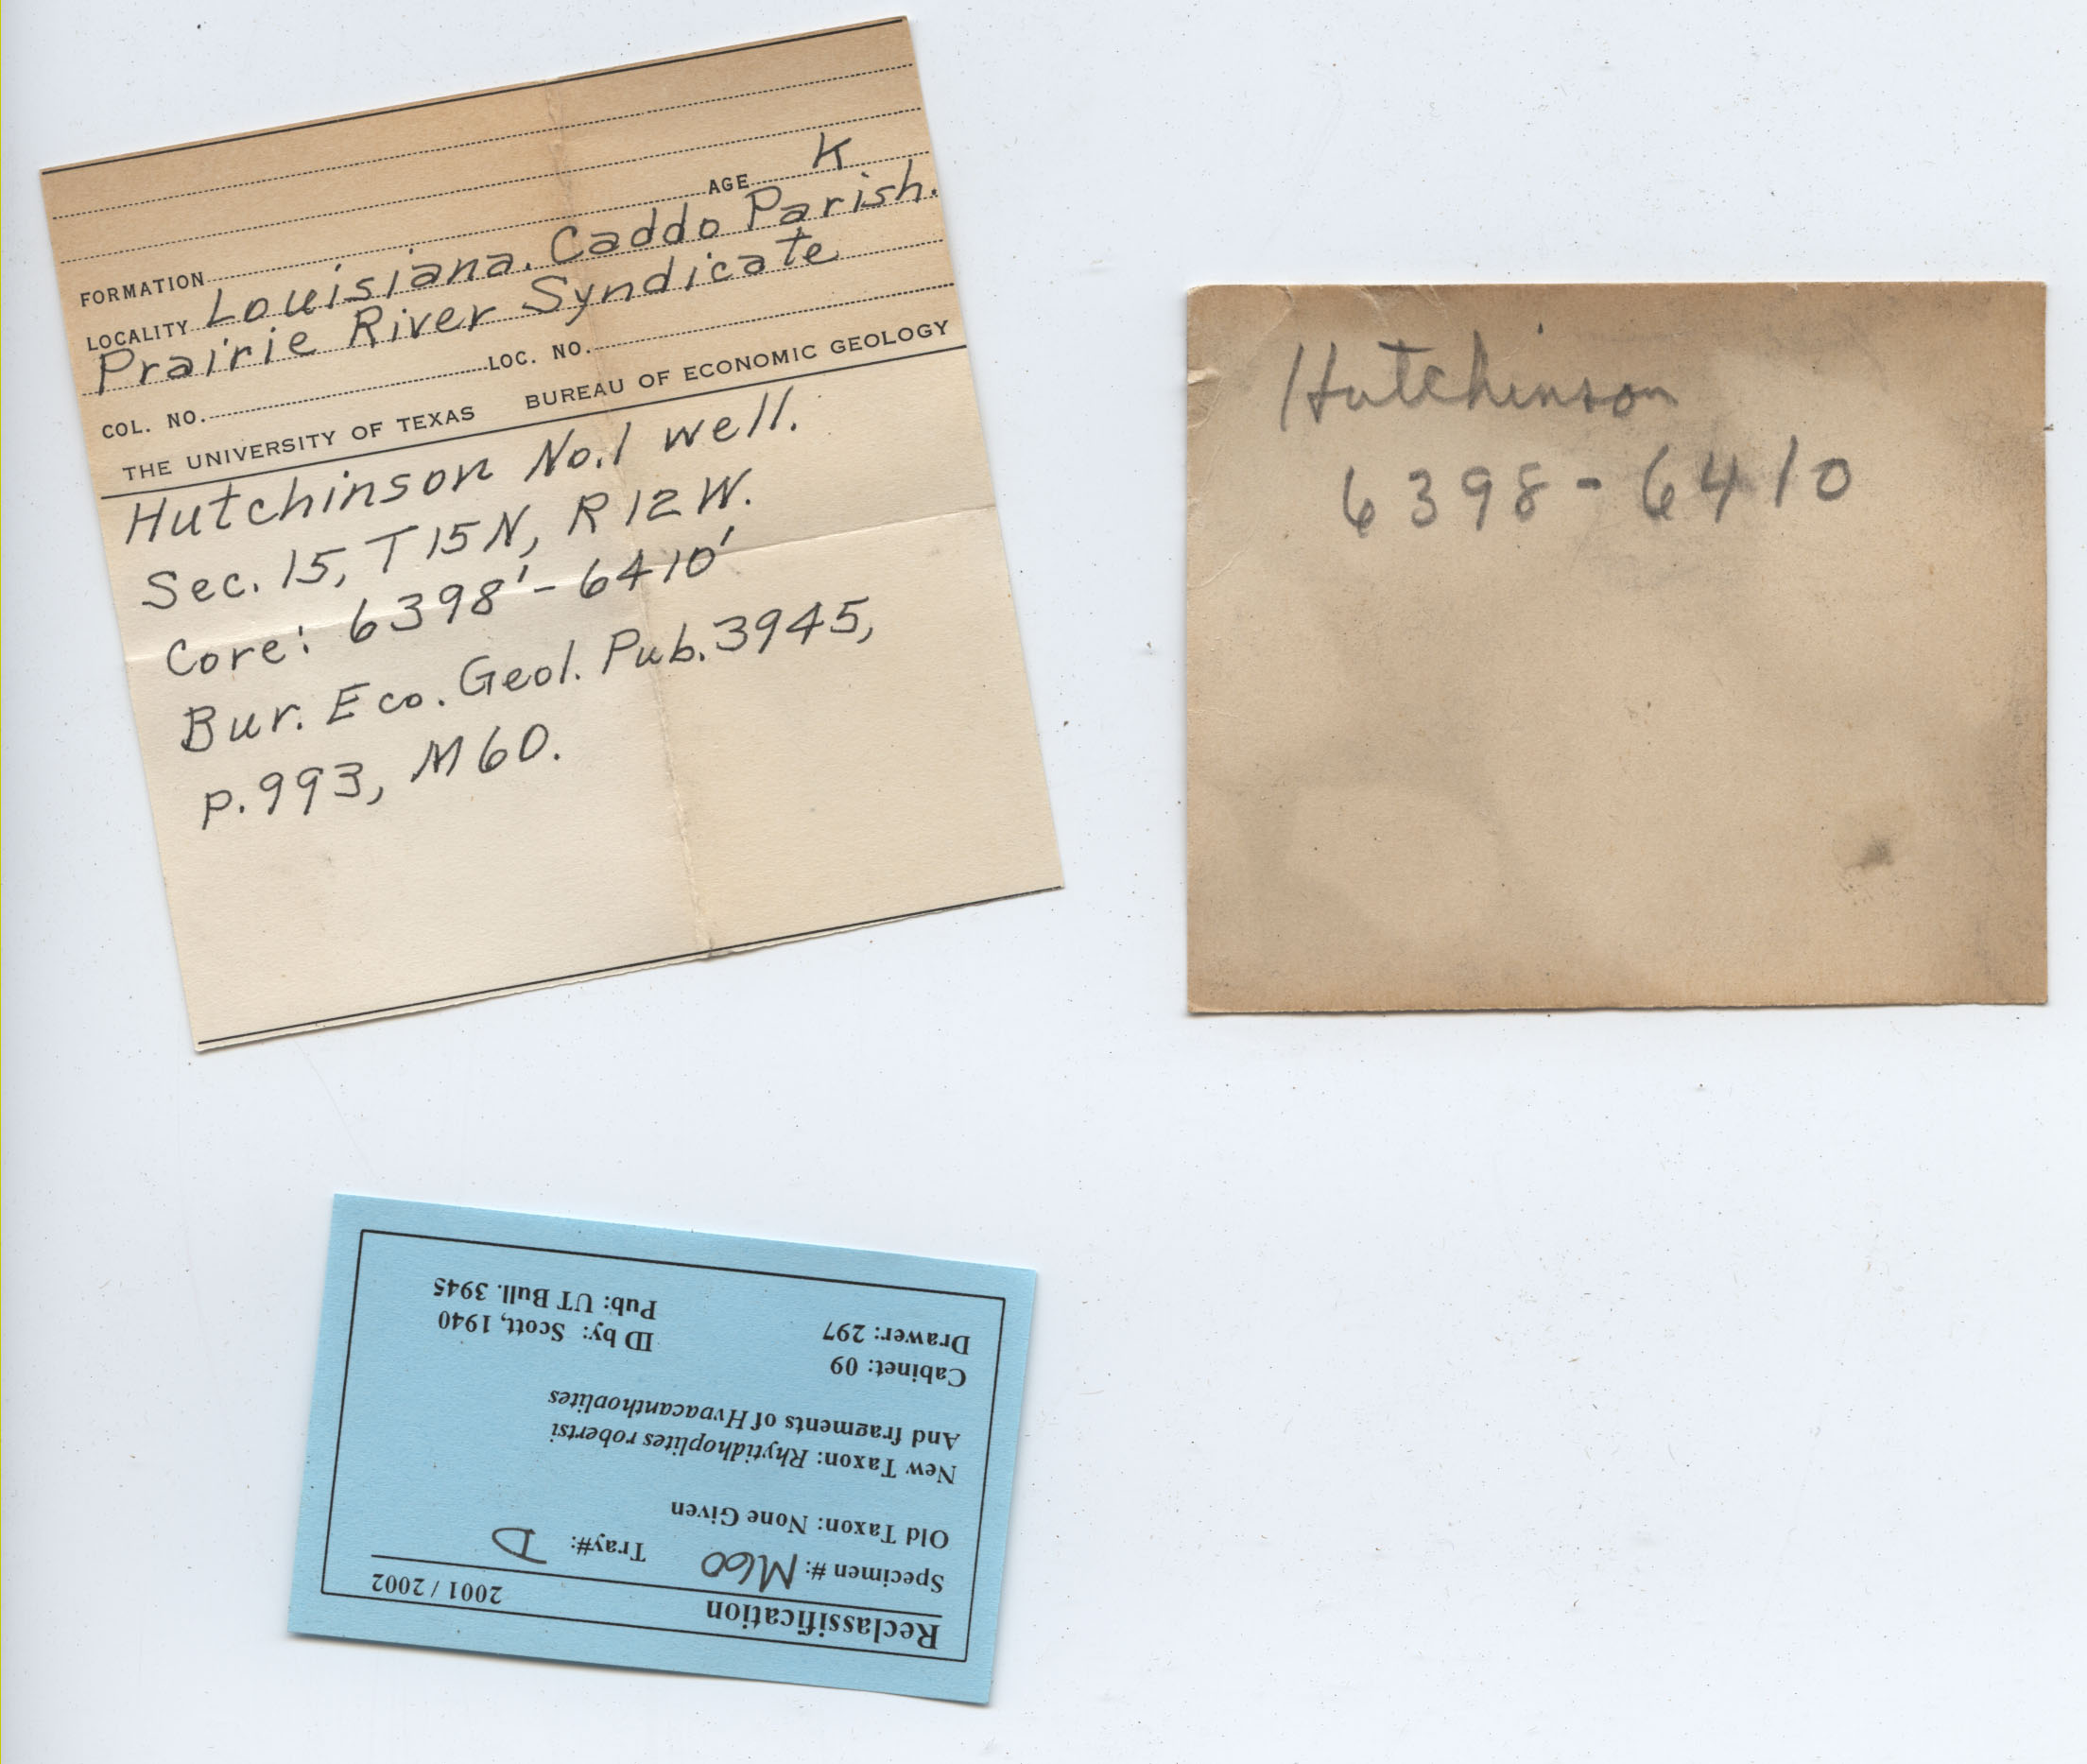 AGE K
FORMATION
LOCALITY Louisiana. Caddo Parish.
Prairie River Syndicate
COL. NO. LOC. NO.
THE UNIVERSITY OF TEXAS BUREAU OF ECONOMIC GEOLOGY
Hutchinson No.1 well.
Sec. 15, T15N, R12W.
Core: 6398'-6410'
Bur. Eco. Geol. Pub. 3945,
p. 993, M60.
Hutchinson
6398-6410
Reclassification 2001 / 2002
Specimen #: M60 Tray#: D
Old Taxon: None Given
New Taxon: Rhytidhoplites robertsi
And fragments of Hypacanthoplites
Cabinet: 09 ID by: Scott, 1940
Drawer: 297 Pub: UT Bull. 3945